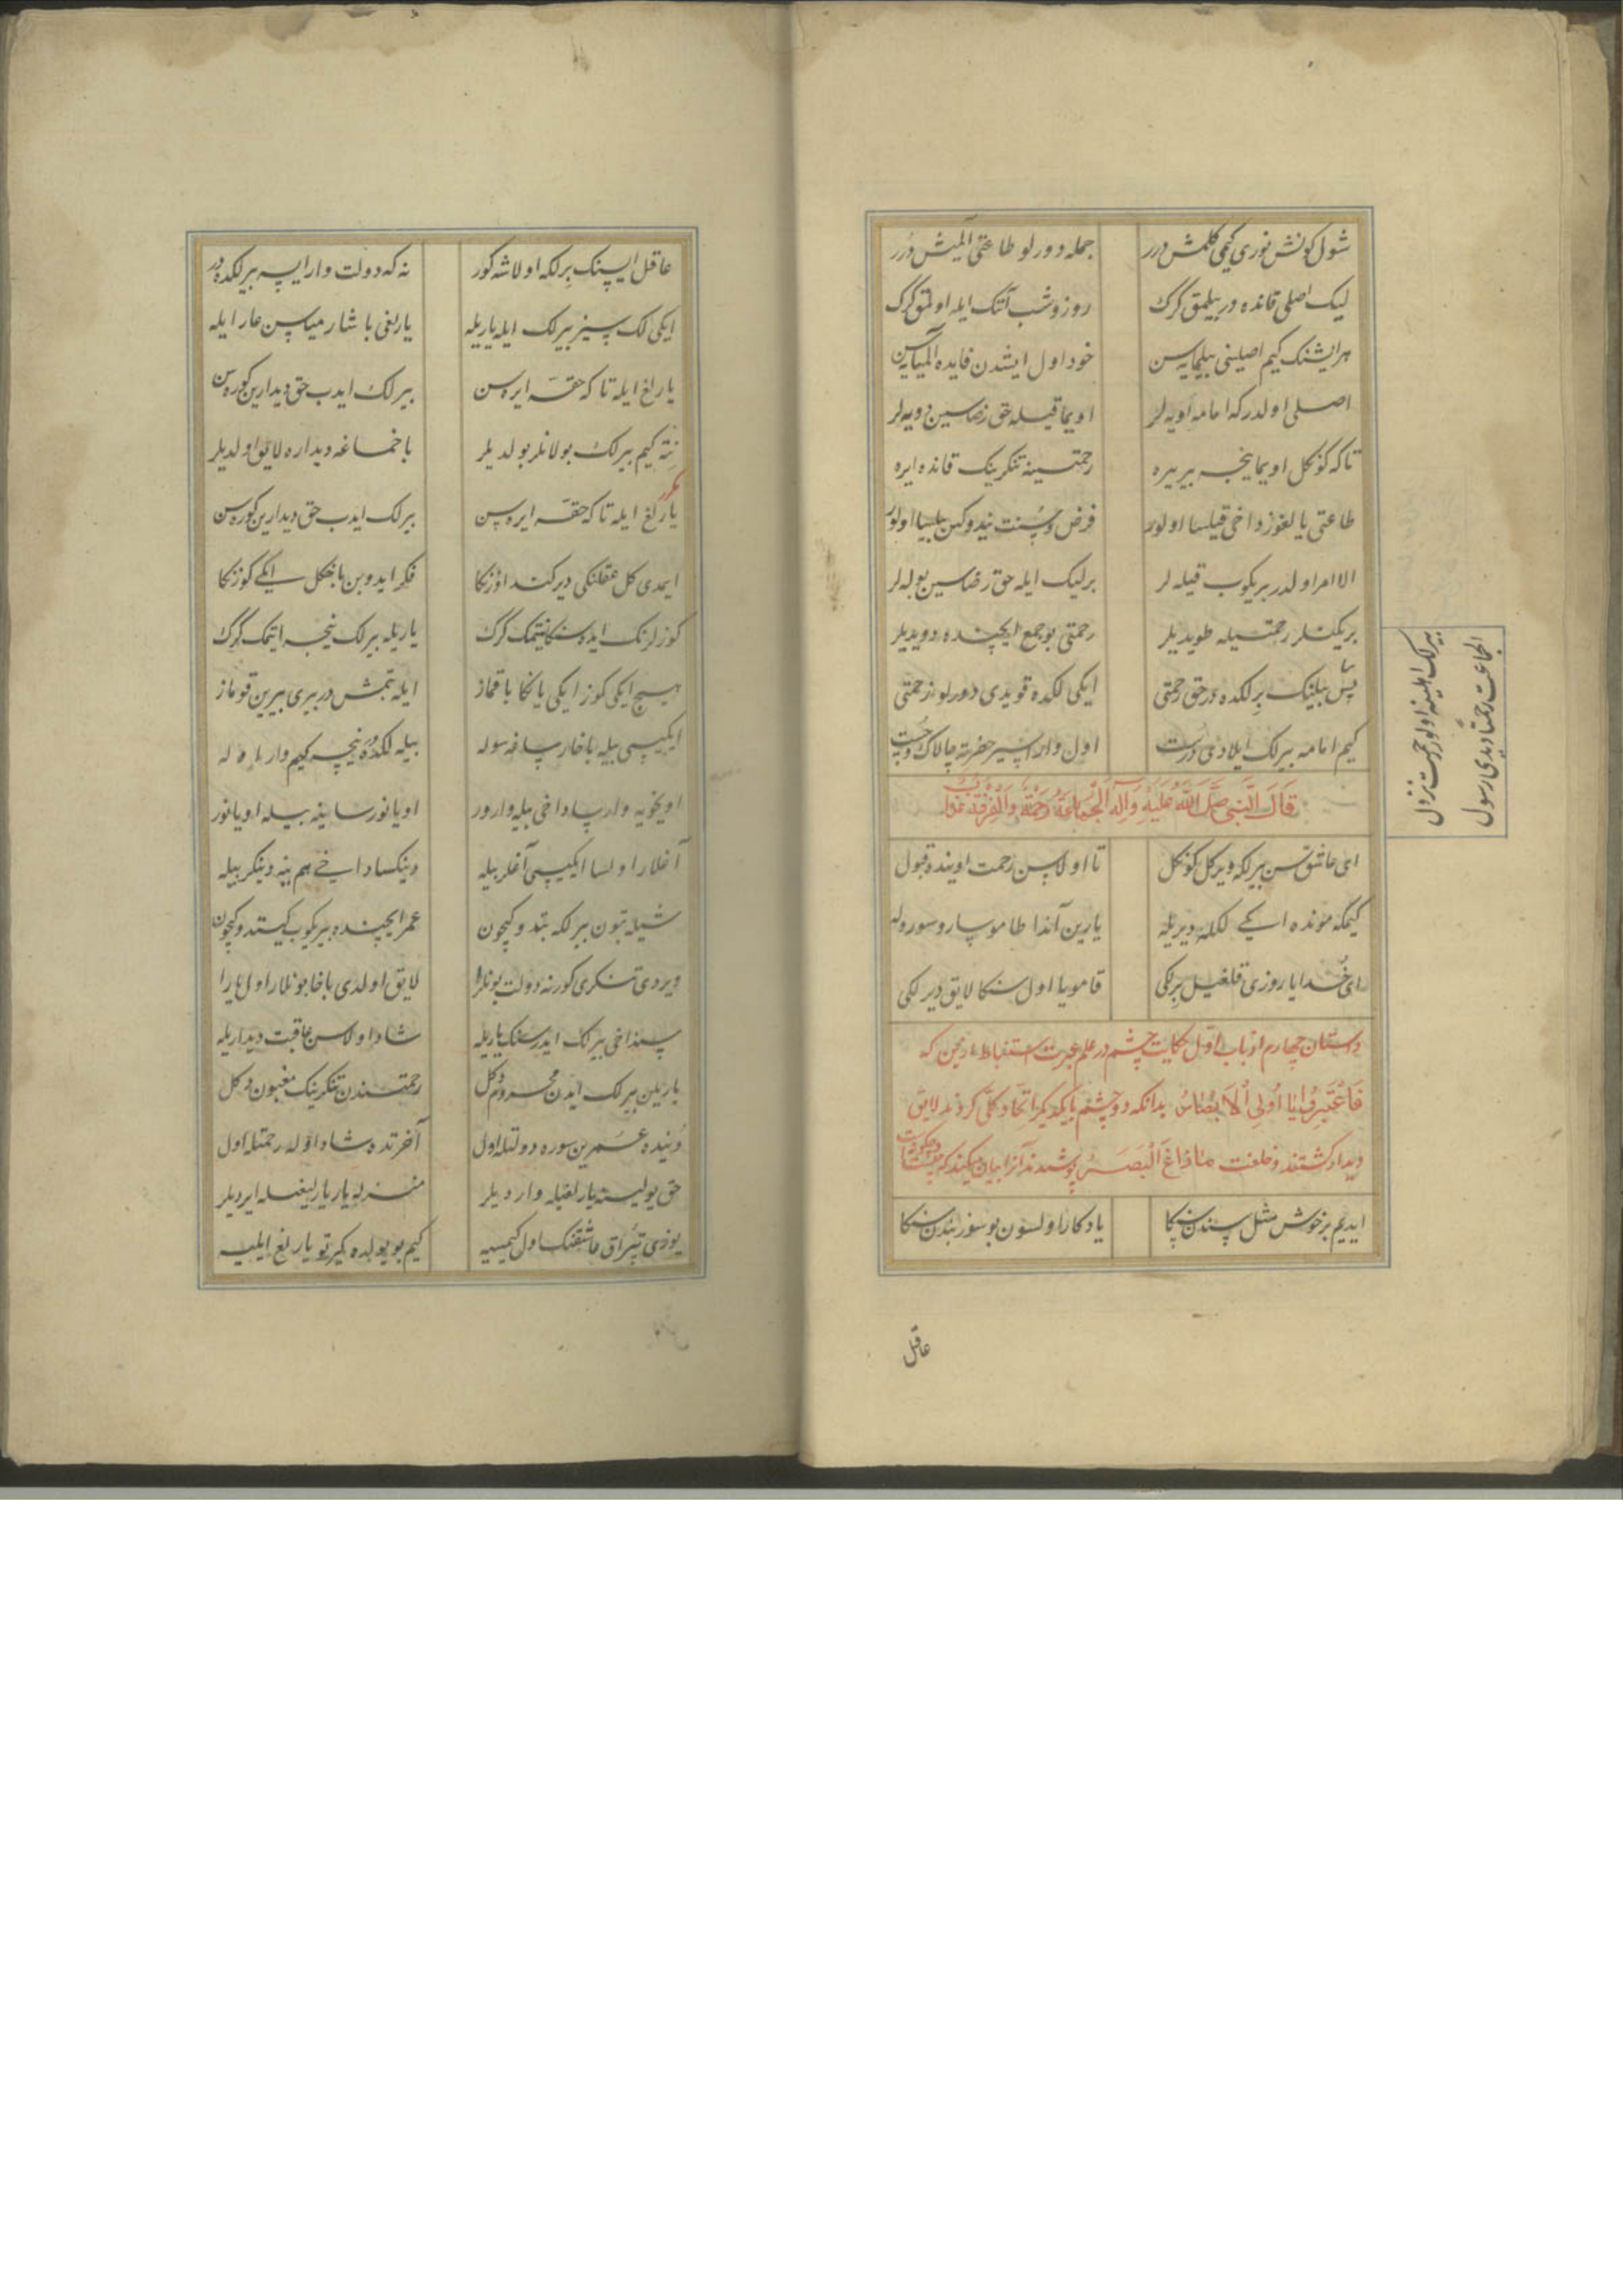 شول کونش نوری کیمی کلمش درر جمله دورلو طاعتی آلمیش درر
لیک اصلی قانده در بیلمق کرک روز و شب آنک ایله اولمق کرک
هر ایشنک کیم اصلینی بیلمایه سن خود اول ایشدن فایده آلمیایه سن
اصلی اولدر که امامه اویه لر اویماقیله حق رضاسین دویه لر
تا که کوکل اویماینجه بیر بیره رحمتینه تنکرینک قانده ایره
طاعتی یالغوز داخی قیلسا اولور فرض و سنت نیدوکین بیلسا اولور
الا امر اولدر بریکوب قیله لر برلیک ایله حق رضاسین بوله لر
بریکنلر رحمتیله طویدیلر رحمتی بو جمع ایچنده دویدیلر
پس بیلینک برلکده در حق رحمتی ایکی لکده قویدی دورلو زحمتی
کیم امامه بیرلک ایلادی درست اول وارا سیر حضرته چالاک و چست
قال النبی صلی الله علیه وآله الجماعة رحمة والفرقة عذاب
ای عاشق سن بیرلکه ویرکل کوکل تا اولاسن رحمت اوینده قبول
کیمکه مونده ایکی لکله دیریله یارین آندا طاموسارو سوروله
ای خدایا روزی قلغیل برلکی قامویا اول سنکا لایق دیرلکی
داستان چهارم از باب اول حکایت چشم در علم عبرت استنباط از بحن که
فاعتبروا یا اولی الابصار بدانکه دو چشم با یکدیکر اتحاد کلی کردند لایق
دیدار کشتند و خلعت ما زاغ البصر پوشیدند آنرا بیان میکند که
ایدیم بر خوش مثل سندن سنکا یادکار اولسون بو سوز بندن سنکا
عاقل
الجماعت رحمتا دیدی رسول
بیرلک اهلینه اولور رحمت نزول
عاقل ایسنک برلکه اولاشه کور نه که دولت وار ایسه بیرلکده در
ایکی لک سیز بیرلک ایله یاریله یارلغی باشار میاسن عار ایله
یارلغ ایله تا که حقه ایره سن بیرلک ایدب حق دیدارین کوره سن
نته کیم بیرلک بولانلر بولدیلر باخماغه دیداره لایق اولدیلر
مکرر
یارلغ ایله تا که حقه ایره سن بیرلک ایدب حق دیدارین کوره سن
ایمدی کل عقلنکی دیر کند اوزنکا فکر ایدوبن باخکل ایکی کوزنکا
کوزلرنک ایده سنکا نیتمک کرک یاریله بیرلک نیجه ایتمک کرک
هیچ ایکی کوز ایکی یانکا باقماز ایله بتمش در بیری بیرین قوماز
ایکیسی بیله باخار ساغه سوله بیله لکده در نیجه کیم وار
اویخویه وارسا داخی بیله وارور اویانورسا ینه بیله اویانور
آغلار اولسا ایکیسی آغلر بیله دینکسا داخی هم ینه دینکر بیله
شیله بتون بیرلکه بتدوکیچون عمر ایچنده بیریکوب کیتدوکیچون
ویردی تنکری کورنه دولت بونلرا لایق اولدی باخا بونلار اول یارا
سنداخی بیرلک ایدرسنک یاریله شاد اولاسن عاقبت دیداریله
یاریلن بیرلک ایدن محروم دکل رحمتندن تنکرینک مغبون دکل
دنیده عمرین سوره دولتله اول آخرتده شاد اوله رحمتله اول
حق یولینه یارلغیله واردیلر منزله یار یارلیغیله ایردیلر
یوزی تپراق عاشقنک اول کیمسیه کیم بو یولده کیرتو یارلغ ایلیه